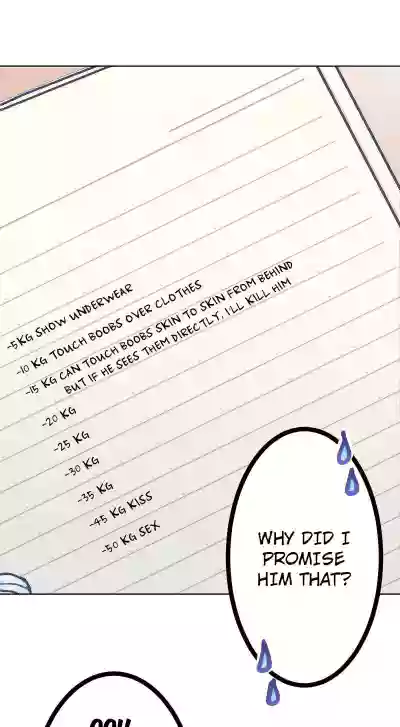 -5KG SHOW UNDERWEAR
-10 KG TOUCH BOOBS OVER CLOTHES
-15 KG CAN TOUCH BOOBS SKIN TO SKIN FROM BEHIND
BUT IF HE SEES THEM DIRECTLY, I'LL KILL HIM
-20 KG
-25 KG
-30 KG
-35 KG
-45 KG KISS
-50 KG SEX
WHY DID I
PROMISE
HIM THAT?